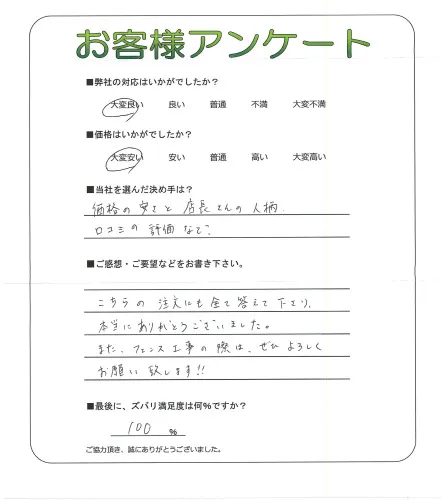 お客様アンケート
■弊社の対応はいかがでしたか?
大変良い 良い 普通 不満 大変不満
■価格はいかがでしたか?
大変安い 安い 普通 高い 大変高い
■当社を選んだ決め手は?
価格の安さと店長さんの人柄.
口コミの評価など?
■ご感想・ご要望などをお書き下さい。
こちらの注文にも全て答えて下さり、
本当にありがとうございました。
また、フェンス工事の際は、ぜひよろしく
お願い致します!!
■最後に、ズバリ満足度は何%ですか?
100 %
ご協力頂き、誠にありがとうございました。